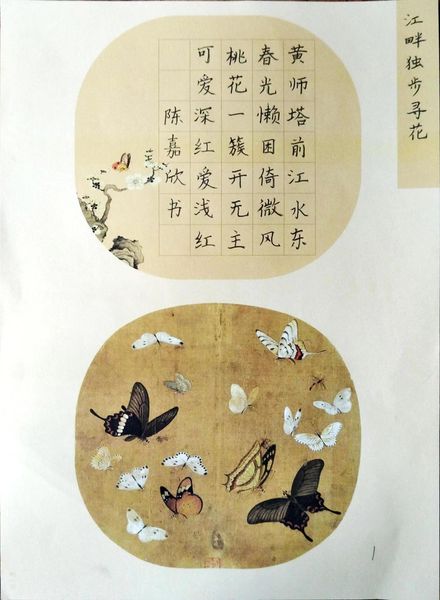 江畔独步寻花
黄师塔前江水东
春光懒困倚微风
桃花一簇开无主
可爱深红爱浅红
陈嘉欣书